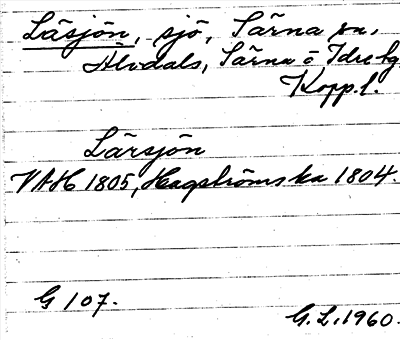 Läsjön, sjö, Särna sn,
Älvdals, Särna o Idre tg
Kopp.l.
Lärsjön
VAH 1805, Hagströms ka 1804.
G 107.
G.L.1960.